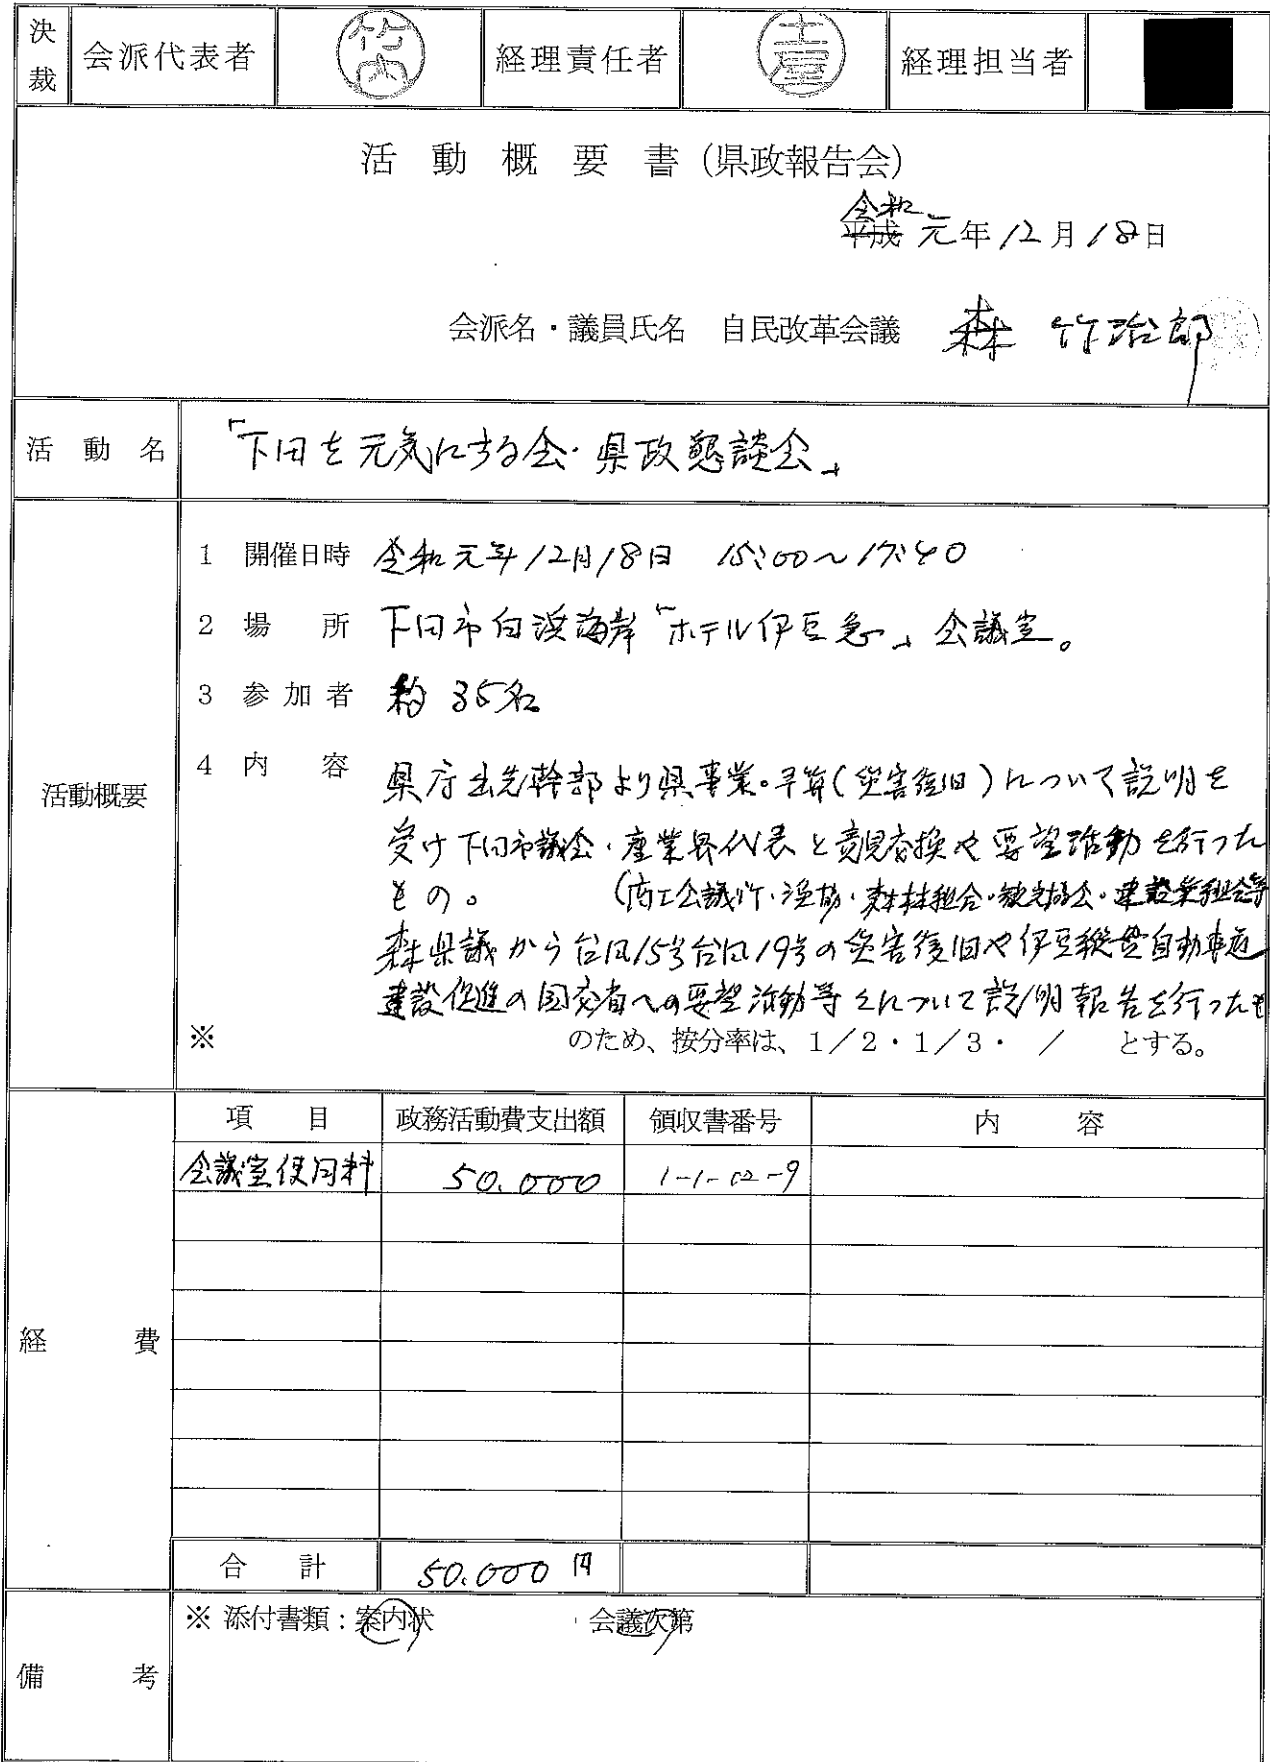 決裁 会派代表者 竹内 経理責任者 土屋 経理担当者
活動概要書（県政報告会）
令和
平成 元年12月18日
会派名・議員氏名 自民改革会議 森 竹治郎
活動名 「下田を元気にする会・県政懇談会」
活動概要
1 開催日時 令和元年12月18日 15:00～17:40
2 場所 下田市白浜海岸「ホテル伊豆急」会議室。
3 参加者 約35名
4 内容 県庁出先幹部より県事業・予算（災害復旧）について説明を
受け下田市議会・産業界代表と意見交換や要望活動を行った
もの。（商工会議所・漁協・森林組合・観光協会・建設業組合等
森県議から台風15号台風19号の災害復旧や伊豆縦貫自動車道
建設促進の国交省への要望活動等について説明報告を行ったも
※ のため、按分率は、1／2・1／3・ ／ とする。
経費
項目 政務活動費支出額 領収書番号 内容
会議室使用料 50.000 1-1-12-9
合計 50.000円
備考
※ 添付書類：案内状 ・会議次第